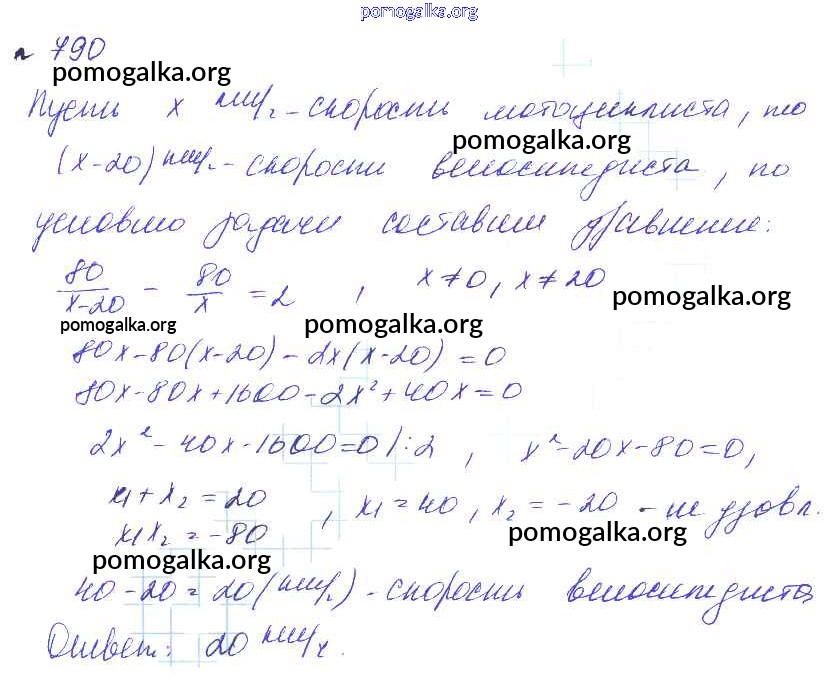 pomogalka.org
№ 790
pomogalka.org
Пусть x км/ч - скорость мотоциклиста, то
pomogalka.org
(x-20) км/ч - скорость велосипедиста, по
условию задачи составим уравнение:
80/(x-20) - 80/x = 2, x≠0, x≠20
pomogalka.org
pomogalka.org pomogalka.org
80x-80(x-20)-2x(x-20)=0
80x-80x+1600-2x²+40x=0
2x²-40x-1600=0 |:2, x²-20x-80=0,
x₁+x₂=20
x₁x₂=-80, x₁=40, x₂=-20 - не удовл.
pomogalka.org
pomogalka.org
40-20=20 (км/ч) - скорость велосипедиста
Ответ: 20 км/ч.